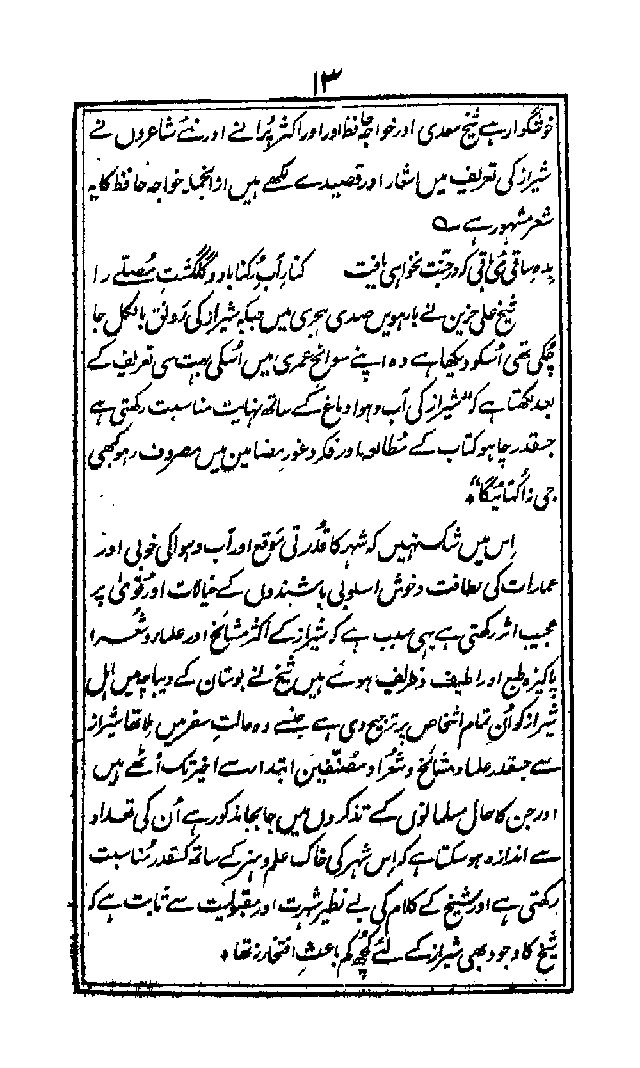 ۱۳
خوشگوار ہے شیخ سعدی اور خواجہ حافظ اور اور اکثر پُرانے اور نئے شاعروں نے
شیراز کی تعریف میں اشعار اور قصیدے لکھے ہیں ازانجملہ خواجہ حافظ کا یہ
شعر مشہور ہے ؎
بدہ ساقی مَی باقی کہ در جنّت نخواہی یافت کنارِ آبِ رُکناباد و گلگشتِ مُصلّے را
شیخ علی حزین نے بارہویں صدی ہجری میں جبکہ شیراز کی رَونق بالکل جا
چُکی تھی اُسکو دیکھا ہے وہ اپنے سوانح عمری میں اُسکی بہت سی تعریف کے
بعد لکھتا ہے کہ "شیراز کی آب و ہوا دماغ کے ساتھ نہایت مناسبت رکھتی ہے
جسقدر چاہو کتاب کے مُطالعہ اور فکر و غورِ مضامین میں مصروف رہو کبھی
جی نہ اُکتائیگا" *
اِس میں شک نہیں کہ شہر کا قُدرتی مَوقع اور آب و ہوا کی خوبی اور
عمارات کی لطافت و خوش اسلوبی باشندوں کے خیالات اور قُویٰ پر
عجیب اثر رکھتی ہے یہی سبب ہے کہ شیراز کے اکثر مشایخ اور علماء و شعرا
پاکیزہ طبع اور لطیف و ظریف ہوئے ہیں شیخ نے بوستان کے دیباچہ میں اہل
شیراز کو اُن تمام اشخاص پر ترجیح دی ہے جنسے وہ حالتِ سفر میں ملا تھا شیراز
سے جسقدر علما و مشائخ و شعرا و مصنّفین ابتدا سے اخیر تک اُٹھے ہیں
اور جن کا حال مسلمانوں کے تذکروں میں جابجا مذکور ہے اُن کی تعداد
سے اندازہ ہو سکتا ہے کہ اِس شہر کی خاک علم و ہنر کے ساتھ کسقدر مُناسبت
رکھتی ہے اور شیخ کے کلام کی بے نظیر شہرت اور مقبولیت سے ثابت ہے کہ
شیخ کا وجود بھی شیراز کے لئے کُچھ کم باعثِ افتخار نہ تھا *